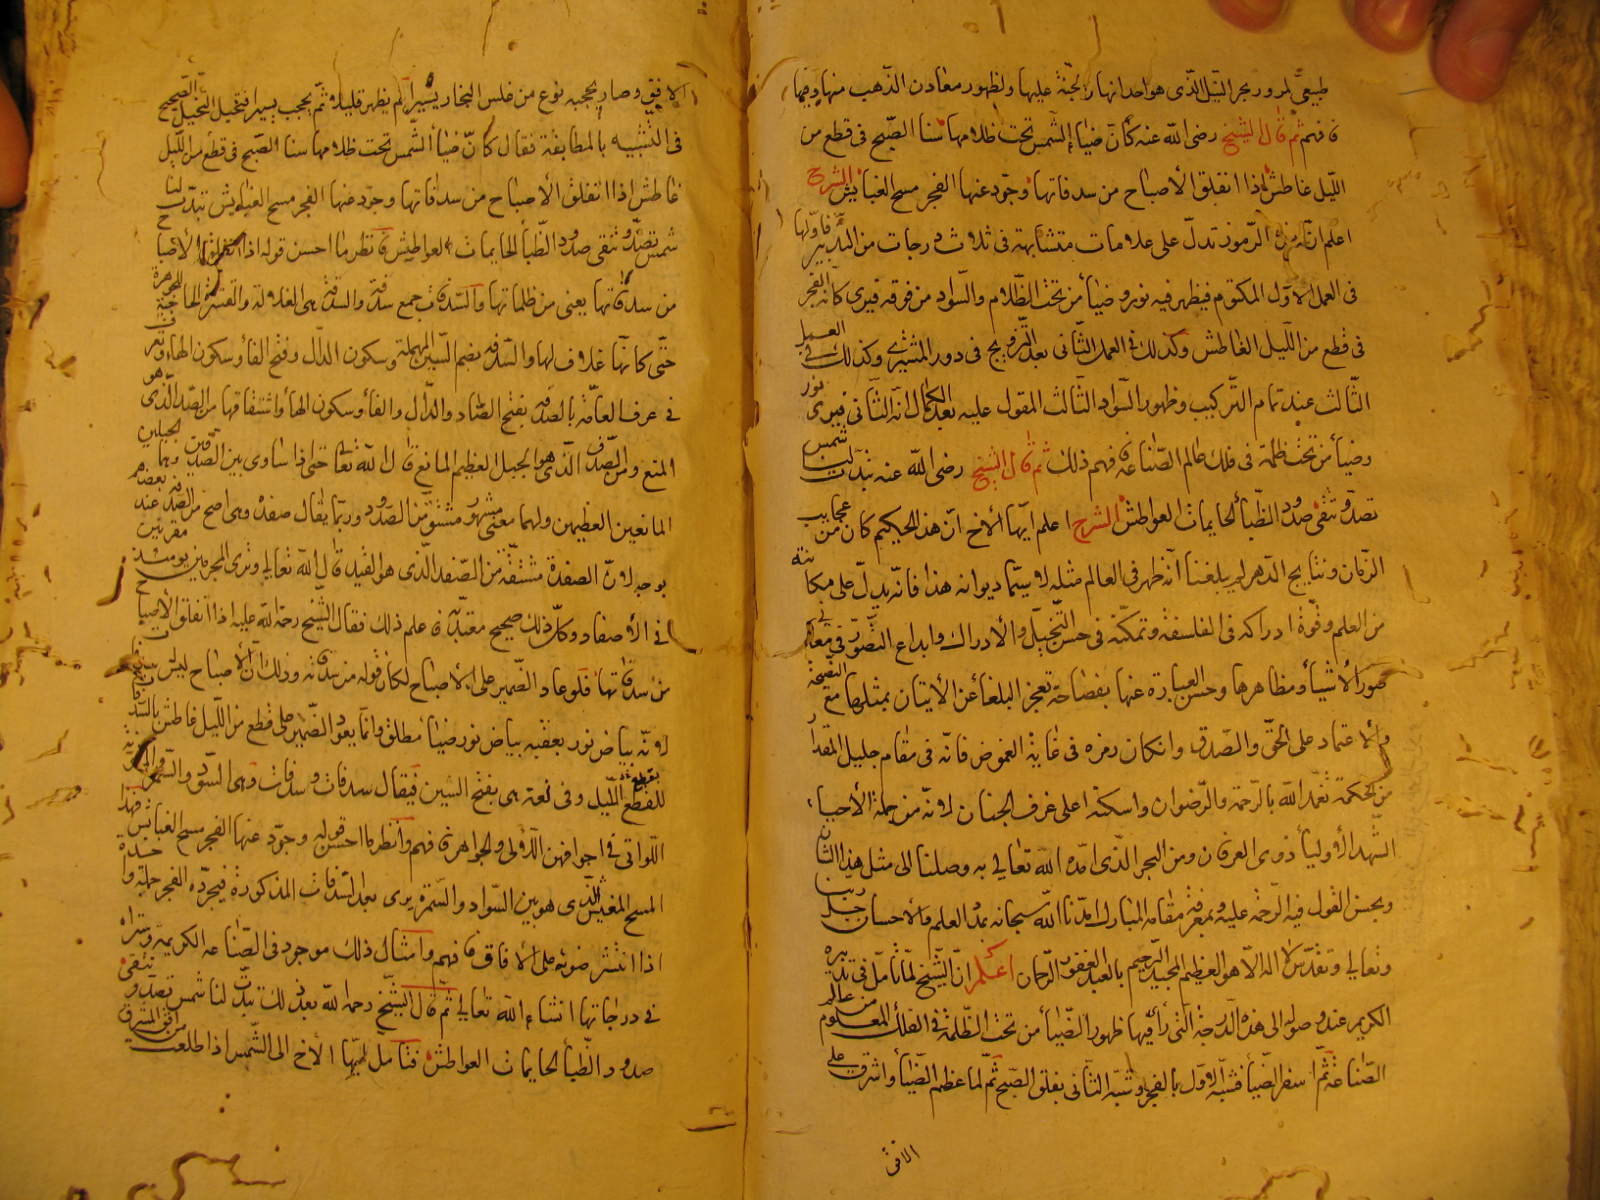 طبيعيّ لمرور بحر النيل الذى هو احد انهار الجنة عليها ولظهور معادن الذهب منها وفيها
فافهم ثم قال الشيخ رضى الله عنه كأن ضياء الشمس تحت ظلامها سنا الصبح فى قطع من
الليل غاطش اذا انفلق الأصباح من سدفاتها وجرّد عنها الفجر مسح الغبايش الشرح
اعلم ان هذه الرموز تدل على علامات متشابهة فى ثلاث درجات من التدبير فاولها
فى العمل الاول المكتوم فيظهر فيه نور وضياء من تحت الظلام والسواد من فوقه فيرى كأنه الفجر
فى قطع من الليل الغاطش وكذلك فى العمل الثانى بعد التزويج فى دور المشترى وكذلك فى العمل
الثالث عند تمام التركيب وظهور السواد الثالث المقول عليه بعد الكمال انه الثانى فيرى نور
وضياء من تحت ظلمة فى فلك عالم الصناعة فافهم ذلك ثم قال الشيخ رضى الله عنه تبدت لنا شمس
تصدّ وتتقى صدود الظباء الحايمات العواطش الشرح اعلم ايها الأخ ان هذا الحكيم كان من عجايب
الزمان ونتايج الدهر لم يبلغنا انه ظهر فى العالم مثله لا سيما ديوانه هذا فانه يدل على مكانته
من العلم وقوة ادراكه فى الفلسفة وتمكنه فى حسن التخيل والادراك وابداع التصور فى معانى
صور الأشياء ومظاهرها وحسن العبارة عنها بفصاحة تعجز البلغاء عن الاتيان بمثلها مع النصيحة
والاعتماد على الحق والصدق وان كان رمزه فى غاية الغموض فانه فى مقام جليل المقدار
من الحكمة تغمده الله بالرحمة والرضوان واسكنه اعلى غرف الجنان لانه من جملة الأحباء
الشهداء الأولياء ذوى العرفان ومن البحر الذى امده الله تعالى به وصلنا الى مثل هذا الشان
وبحسن القول فيه الرحمة عليه وبمعرفة مقامه المبارك امدنا الله سبحانه بمدد العلم والاحسان جل ربنا
وتعالى وتقدس لا اله الا هو العظيم المجيد الرحيم بالعبد الغفور الرحمان اعلم ان الشيخ لما تأمل فى تدبيره
الكريم عند وصوله الى هذه الدرجة التى رأى فيها ظهور الضياء من تحت الظلمة فى الفلك المعلوم من عالم
الصناعة ثم اسفر الضياء فشبه الاول بالفجر وشبه الثانى بفلق الصبح ثم لما عظم الضياء واشرق على
الافق
الافق وصار يحجبه نوع من غلس البخار يسيرا ثم يظهر قليلا ثم يحجب يسيرا فتخيل التخيل الصحيح
فى التشبيه بالمطابقة فقال كأن ضياء الشمس تحت ظلامها سنا الصبح فى قطع من الليل
غاطش اذا انفلق الأصباح من سدفاتها وجرّد عنها الفجر مسح الغبايش تبدت لنا
شمس تصدّ وتتقى صدود الظباء الحايمات العواطش فانظر ما احسن قوله اذا انفلق الأصباح
من سدفاتها يعنى من ظلماتها والسدفات جمع سدفة والسدفة هى الغلالة والقشرة الحاجبة للجوهرة
حتى كأنها غلاف لها والسدفه بضم السين المهملة وسكون الدال وفتح الفاء وسكون الهاء وتعرف
فى عرف العامه بالصدفه بفتح الصاد والدال والفاء وسكون الهاء واشتقاقها من الصد الذى هو
المنع ومن الصدف الذى هو الجبل العظيم المانع قال الله تعالى حتى اذا ساوى بين الصدفين وهما الجبلين
المانعين العظيمين ولهما معنى مشهور مشتق من الصدود وربما يقال صفده وهى اصح من الصدفه عند بعضهم
بوجه لان الصفدة مشتقة من الصفد الذى هو القيد قال الله تعالى وترى المجرمين يومئذ مقرنين
فى الأصفاد وكل ذلك صحيح معتبر فاعلم ذلك فقال الشيخ رحمة الله عليه اذا انفلق الأصباح
من سدفاتها فلو عاد الضمير على الأصباح لكان قوله من سدفاته وذلك ان الأصباح ليس
لانه بياض نور يعقبه بياض نور ضياء مطلق وانما يعود الضمير على قطع من الليل غاطش
للقطع الليل وفى لغة هى بفتح السين فيقال سدفات وسدفات وهى السود والسمر
اللواتى فى اجوافهن اللؤلؤ والجواهر فافهم وانظر ما احسن قوله وجرّد عنها الفجر مسح الغبائش فهذا
المسح المغبش الذى هو بين السواد والسمرة يرى بعد السدفات المذكورة فيجرّده الفجر جملة واحدة
اذا انتشر ضوئه على الافاق فافهم وامثال ذلك موجود فى الصناعه الكريمة وستراه
فى درجاتها ان شاء الله تعالى ثم قال الشيخ رحمه الله بعد ذلك تبدت لنا شمس تصدّ وتتقى
صدود الظباء الحايمات العواطش فتأمل ايها الأخ الى الشمس اذا طلعت من افق المشرق